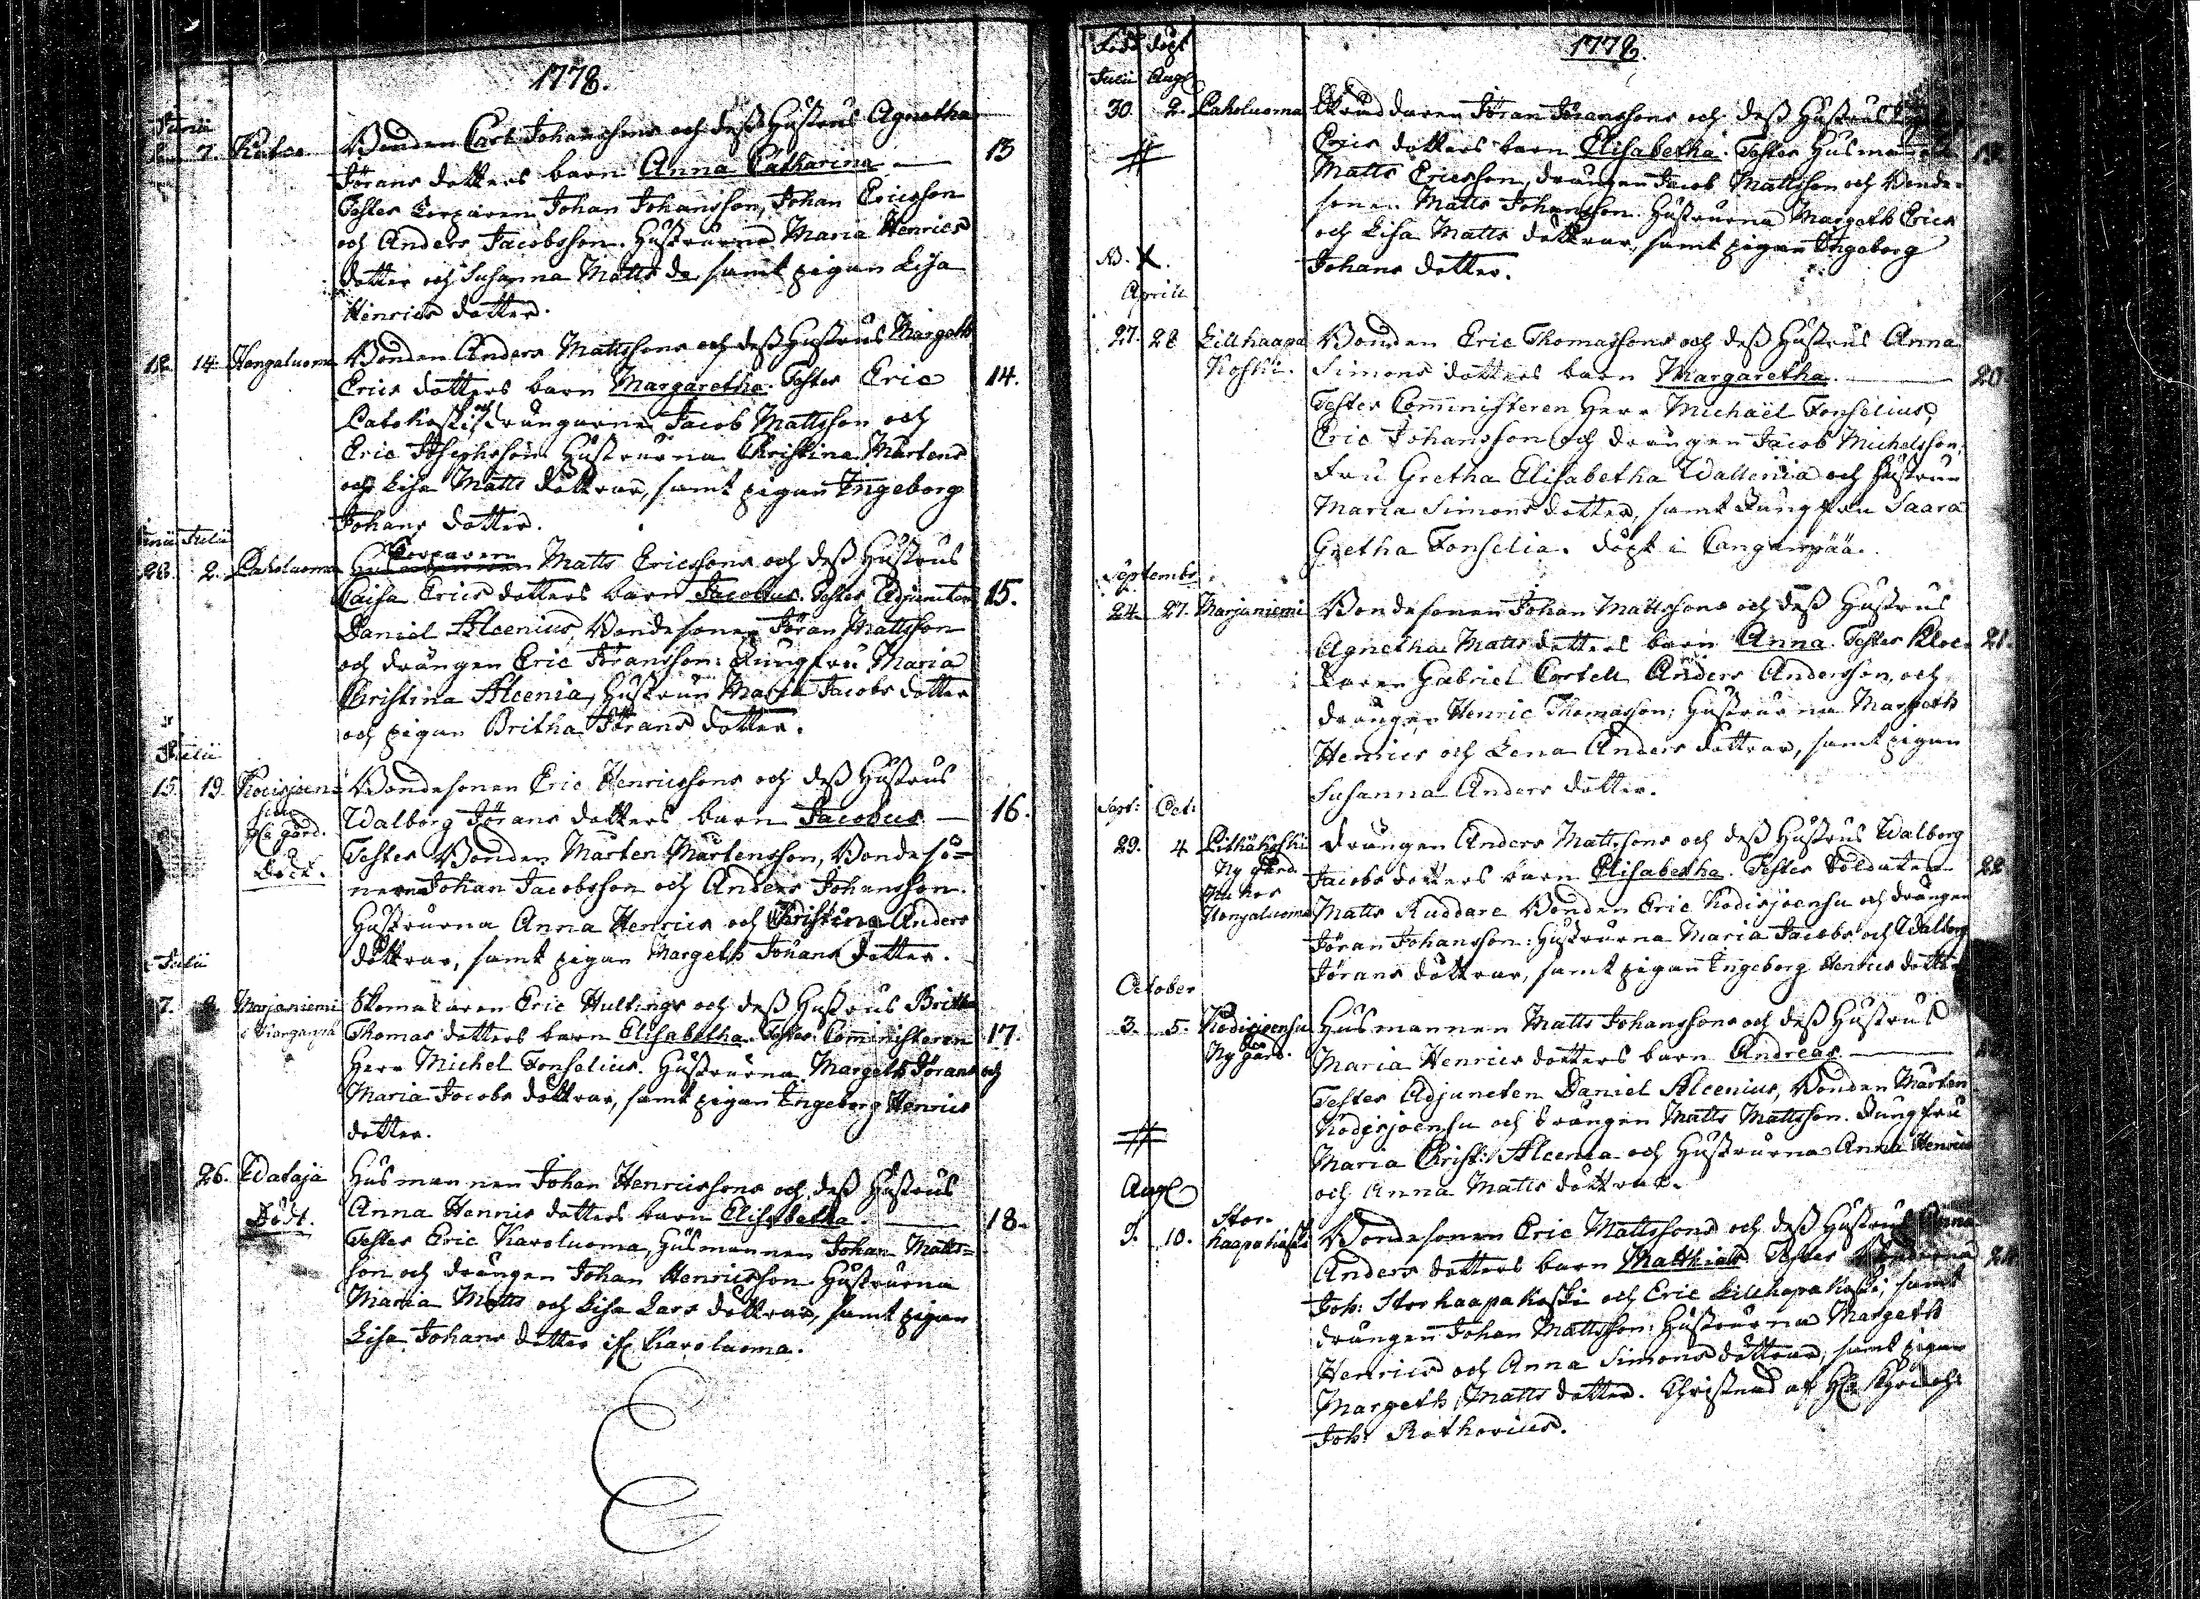 1778.
Junii
7. Bonden Carl Johanssons och dess Hustrus Agnetha
Jörans dotters barn Anna Catharina — 13
Testes Torparen Johan Johansson, Johan Ericsson
och Anders Jacobsson. Hustrurna Maria Henrics
dotter och Susanna Matts do samt pigan Lisa
Henrics dotter.
12. 14. Hongaluoma Bonden Anders Mattssons och dess Hustrus Margeth
Erics dotters barn Margaretha. Testes Eric 14.
drängarne Jacob Mattsson och
Eric Josephsson Hustrurna Christina Mårtens
och Lisa Matts döttrar, samt pigan Ingeborg
Johans dotter.
Junii Julii
28. 2. Paholuoma Torparen Matts Ericssons och dess Hustrus
Caisa Erics dotters barn Jacobus. Testes Adjuncten 15.
Daniel Alcenius, Bondesonen Jöran Mattsson
och drängen Eric Jöransson: Jungfru Maria
Christina Alcenia, Hustrun Maria Jacobs dotter
och pigan Britha Jörans dotter.
Julii
15. 19. Kodisjoensu Bondesonen Eric Henricssons och dess Hustrus
gård. Walborg Jörans dotters barn Jacobus. — 16.
Testes Bonden Mårten Mårtensson, Bondesö=
Död. nerna Johan Jacobsson och Anders Johansson.
Hustrurna Anna Henrics och Christina Anders
döttrar, samt pigan Margeth Johans dotter.
Julii
7. Marjaniemi Skomakaren Eric Hultings och dess Hustrus Britha
i Kanganpä Thomas dotters barn Elisabetha. Testes Comministeren 17.
Herr Michel Fonselius. Hustrurna Margeth Jörans och
Maria Jacobs döttrar, samt pigan Ingeborg Henrics
dotter.
26. Wataja Husmannen Johan Henricssons och dess Hustrus
Död. Anna Henrics dotters barn Elisabetha. — 18.
Testes Eric Karoluoma, Husmannen Johan Matts=
son och drängen Johan Henricsson Hustrurna
Maria Matts och Lisa Lars döttrar, samt pigan
Lisa Johans dotter Karoluoma.
1778.
Född döpt
Julii Aug
30. 2. Paholuoma Skräddaren Jöran Jöranssons och dess Hustrus
Erics dotters barn Elisabetha. Testes Husmannen 19.
Matts Ericsson, drängen Jacob Mattsson och Bonde=
sonen Matts Johansson. Hustrurna Margeth Erics
och Lisa Matts döttrar, samt pigan Ingeborg
NB. X. Johans dotter.
Aprill
27. 28 Lillhaapa Bonden Eric Thomassons och dess Hustrus Anna
Koski. Simons dotters barn Margaretha. — 20
Testes Comministeren Herr Michaël Fonselius,
Eric Johansson och drängen Jacob Michelsson,
Fru Gretha Elisabetha Wallenia och Hustrun
Maria Simons dotter, samt Jungfru Saara
Gretha Fonselia. döpt i Canganpää.
Septembr
24. 27. Marjaniemi Bondesonen Johan Mattssons och dess Hustrus
Agnetha Matts dotters barn Anna. Testes Kloc= 21.
karen Gabriel Cortell Anders Andersson, och
drängen Henric Thomasson; Hustrurna Margeth
Henrics och Lena Anders döttrar, samt pigan
Susanna Anders dotter.
Sept: Oct:
29. 4. Pitkäkoski drängen Anders Mattssons och dess Hustrus Walborg
Ny gård Jacobs dotters barn Elisabetha. Testes Soldaten 22
Hongaluoma Matts Ruddare Bonden Eric Kodisjoensu och drängen
Jöran Johansson: Hustrurna Maria Jacobs och Walborg
Jörans döttrar, samt pigan Ingeborg Henrics dotter
October
3. 5. Kodisjoensu Husmannen Matts Johanssons och dess Hustrus
Ny gård. Maria Henrics dotters barn Andreas. —
Testes Adjuncten Daniel Alcenius, Bonden Mårten
Kodisjoensu och drängen Matts Mattsson. Jungfru
Maria Christ: Alcenia och Hustrurna Anna Henrics
och Anna Matts döttrar.
Aug
9. 10. Stor- Bondesonen Eric Mattssons och dess Hustrus Anna
haapakoski Anders dotters barn Matthias. Testes Bönderna
Joh: Storhaapakoski och Eric Lillhapakoski, samt
drängen Johan Mattsson: Hustrurna Margeth
Henrics och Anna Simons döttrar, samt pigan
Margeth Matts dotter. Christnad af
Joh: Rothovius.